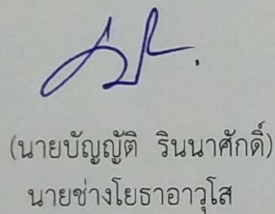 (นายบัญญัติ รินนาศักดิ์)
นายช่างโยธาอาวุโส